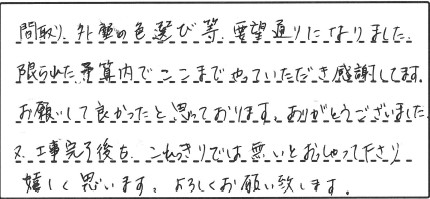 間取り、外壁の色選び等、要望通りになりました。
限られた予算内でここまでやっていただき感謝してます。
お願いして良かったと思っております。ありがとうございました。
又、工事完了後も、これっきりでは無いとおっしゃって下さり
嬉しく思います。よろしくお願い致します。